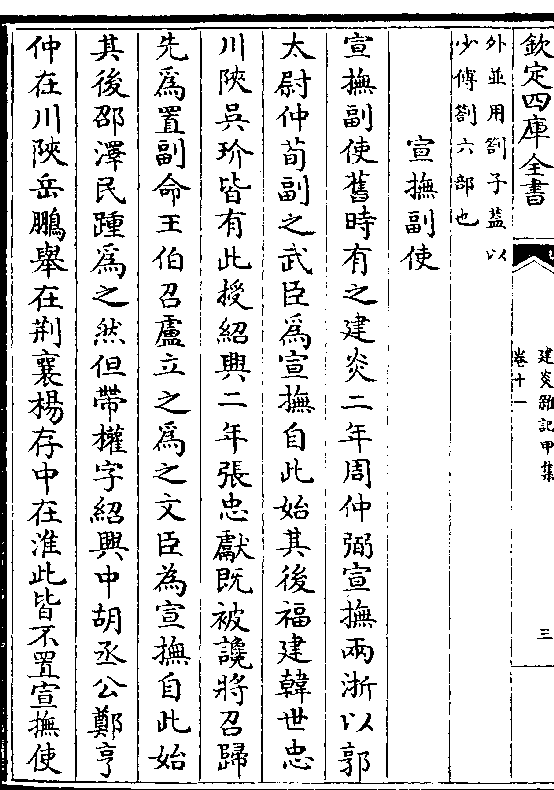 欽定四庫全書
建炎雜記甲集
卷十一
三
外並用劄子葢以
少傅劄六部也
宣撫副使
宣撫副使舊時有之建炎二年周仲弼宣撫兩浙以郭
太尉仲荀副之武臣爲宣撫自此始其後福建韓世忠
川陜吳玠皆有此授紹興二年張忠獻既被讒將召歸
先爲置副命王伯召盧立之爲之文臣為宣撫自此始
其後邵澤民踵爲之然但帶權字紹興中胡丞公鄭亨
仲在川陜岳鵬舉在荆襄楊存中在淮此皆不置宣撫使